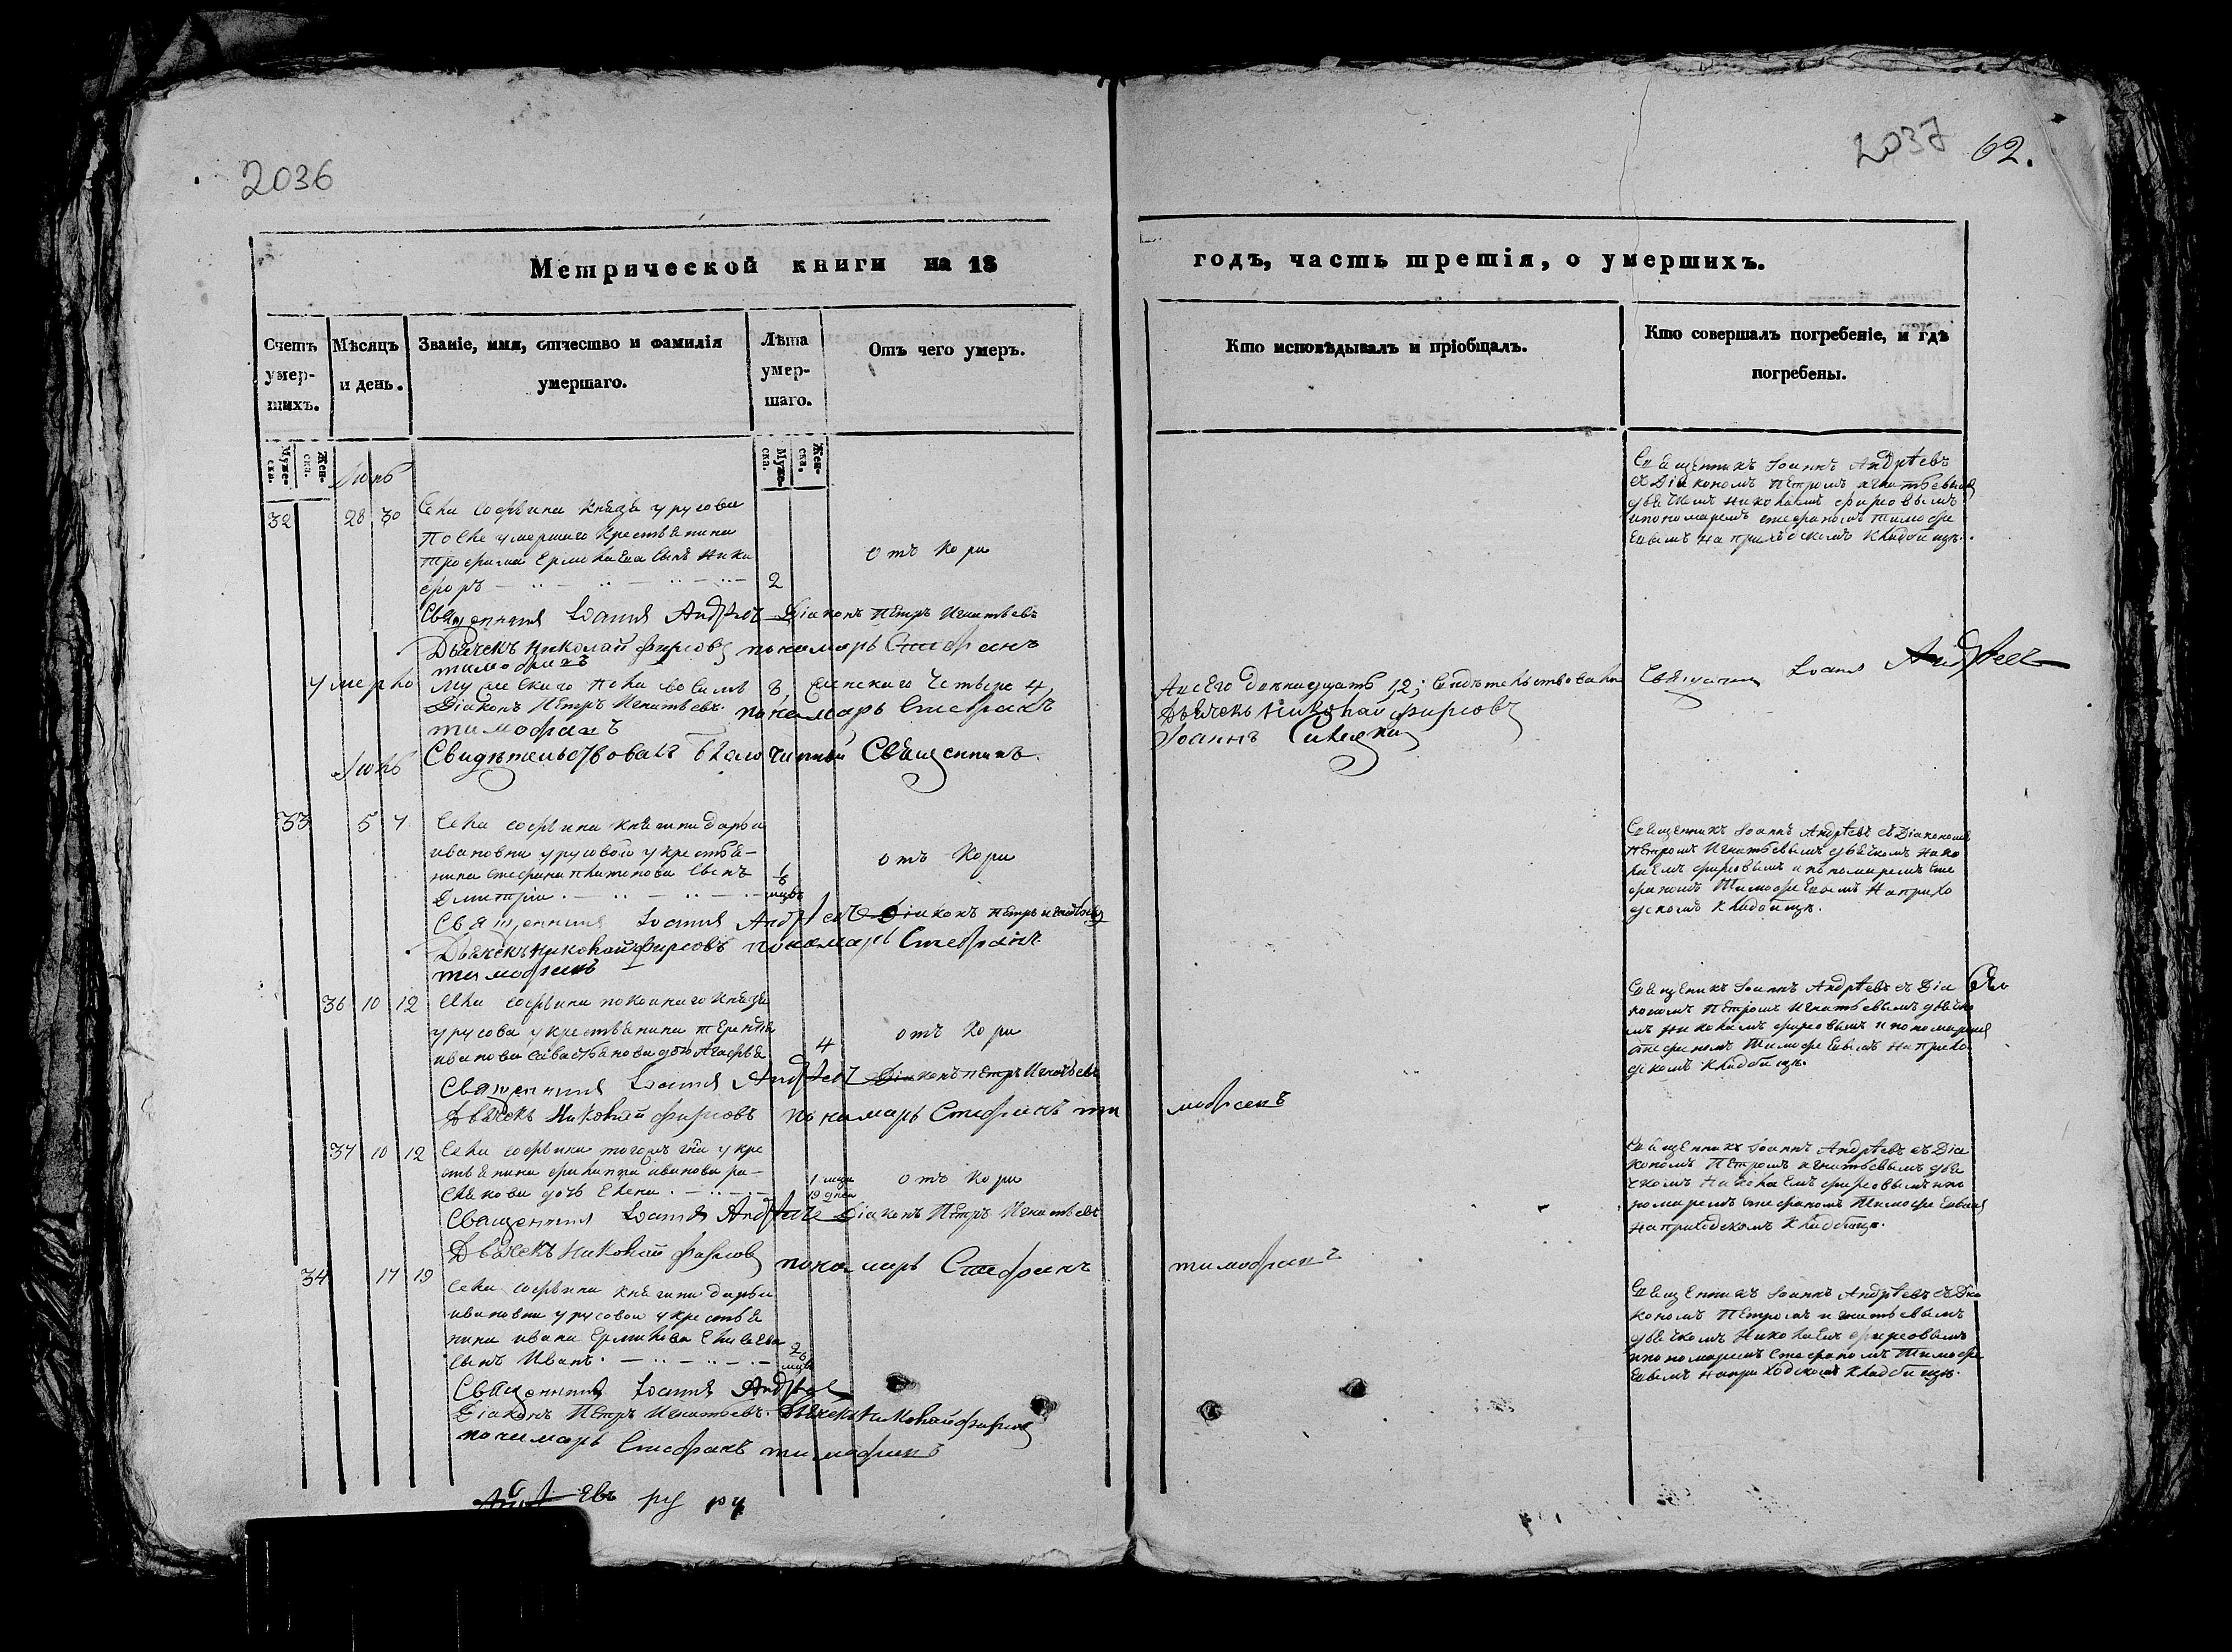 2036
2037 62.
Метрической книги на 18
годъ, часть третія, о умершихъ.
Счетъ умер-шихъ.
Мѣсяцъ и день.
Званіе, имя, отчество и фамилія умершаго.
Лѣта умер-шаго.
Отъ чего умеръ.
Кто исповѣдывалъ и пріобщалъ.
Кто совершалъ погребеніе, и гдѣ погребены.
Муже-ска.
Жен-ска.
Муже-ска.
Жен-ска.
32 28 30 Села софьина князя урусова
после умершаго крестьянина
трофима Ермилаева сынъ Ники
форъ 2 отъ кори
Священникъ Іоаннъ Андреевъ
съ Діакономъ Петромъ игнатьевымъ
дьячкомъ николаемъ фирсовымъ
ипономаремъ стефаномъ тимофе
евымъ на приходскомъ кладбищѣ.
Священникъ Іоаннъ Андреевъ Діаконъ Петръ Игнатьевъ
Дьячекъ Николай фирсовъ пономарь Стефанъ
тимофеевъ
умерло мужескаго пола восемь 8, женскаго четыре 4,
Авсего двенадцать 12; свидѣтельствовали Священникъ Іоаннъ Андреевъ
Діаконъ Петръ Игнатьевъ. пономарь Стефанъ
Дьячекъ Николай фирсовъ
тимофеевъ
Свидѣтельствовалъ Благочинный Священникъ
Іоаннъ
Іюль
33 5 7 Села софьина княгини дарьи
ивановны урусовой у крестья-
нина стефана платонова сынъ
Дмитрій 6 мцвъ отъ кори
Священникъ Іоаннъ Андреевъ съ Діакономъ
Петромъ Игнатьевымъ дьячкомъ Нико
лаемъ фирсовымъ и пономаремъ сте
фаномъ Тимофеевымъ На прихо
дскомъ кладбищѣ.
Священникъ Іоаннъ Андреевъ Діаконъ Петръ Игнатьевъ
Дьячекъ Николай фирсовъ пономарь Стефанъ
тимофеевъ
36 10 12 Села софьина покойнаго князя
урусова у крестьянина терентья
иванова севастьянова дочь Агафья 4 отъ кори
Священикъ Іоаннъ Андреевъ съ Діа
кономъ Петромъ Игнатьевымъ дьячко
мъ николаемъ фирсовымъ и пономаремъ
стефаномъ Тимофеевымъ на прихо
дскомъ кладбищѣ.
Священникъ Іоаннъ Андреевъ Діаконъ Петръ Игнатьевъ
Дьячекъ Николай фирсовъ пономарь Стефанъ ти
мофеевъ
37 10 12 Села софьина у кре
стьянина филиппа иванова
дочь Елена 1 мцъ 19 дней отъ кори
Священникъ Іоаннъ Андреевъ съ Діа
кономъ Петромъ игнатьевымъ дья
чкомъ Николаемъ фирсовымъ ипо
номаремъ стефаномъ Тимофеевымъ
на приходскомъ кладбищѣ.
Священникъ Іоаннъ Андреевъ Діаконъ Петръ Игнатьевъ
Дьячекъ Николай фирсовъ пономарь Стефанъ
тимофеевъ
34 17 19 Села софьина княгини дарьи
ивановны урусовой у крестья
нина ивана Ермилова
сынъ Иванъ мцв
Священникъ Іоаннъ Андреевъ съ Діа
кономъ Петромъ игнатьевымъ
дьячкомъ Николаемъ фирсовымъ
ипономаремъ Стефаномъ Тимофе
евымъ на приходскомъ кладбищѣ.
Священникъ Іоаннъ Андреевъ
Діаконъ Петръ Игнатьевъ. Дьячекъ Николай фирсовъ
пономарь Стефанъ тимофеевъ